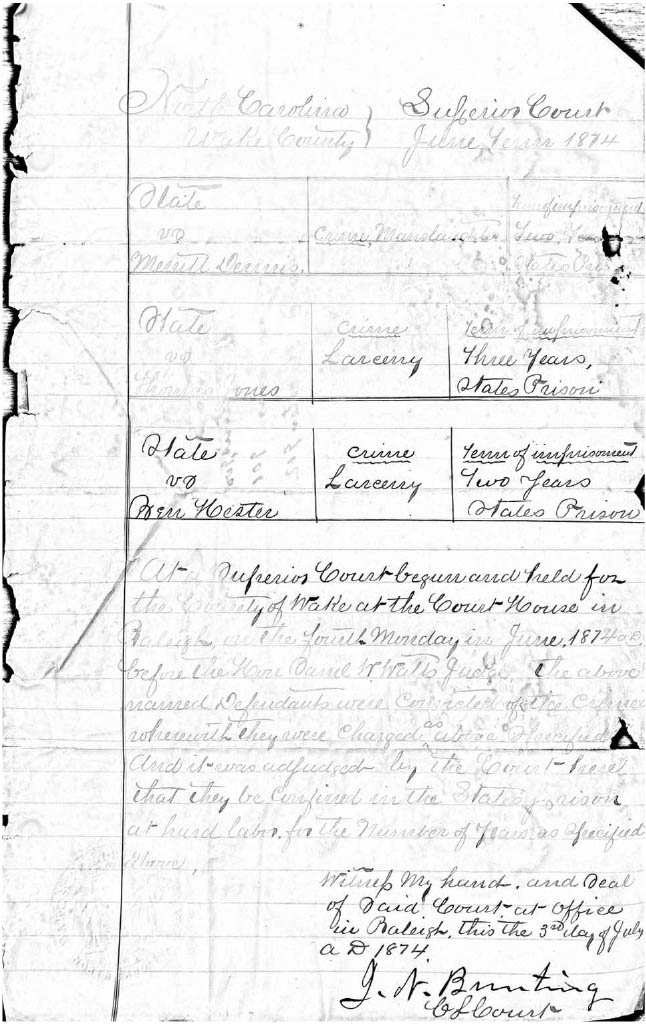 North Carolina } Superior Court
Wake County } June Term 1874
State Term of imprisonment
vs Crime, Manslaughter Two Years
Merritt Dennis. States Prison
State Crime Term of imprisonment
vs Larceny Three Years,
Thomas Jones States Prison
State Crime Term of imprisonment
vs Larceny Two Years
Ben Hester States Prison
At a Superior Court begun and held for
the County of Wake at the Court House in
Raleigh, on the fourth Monday in June, 1874 A.D.
before the Hon W Watts Judge. The above
named Defendants were Convicted of the Crimes
wherewith they were Charged as above Specified
And it was adjudged by the Court
that they be Confined in the States prison
at hard labor, for the Number of Years as Specified
above,
Witness My hand, and Seal
of Said Court, at Office
in Raleigh, this the 3rd day of July
A D 1874.
J. N. Bunting
C S Court